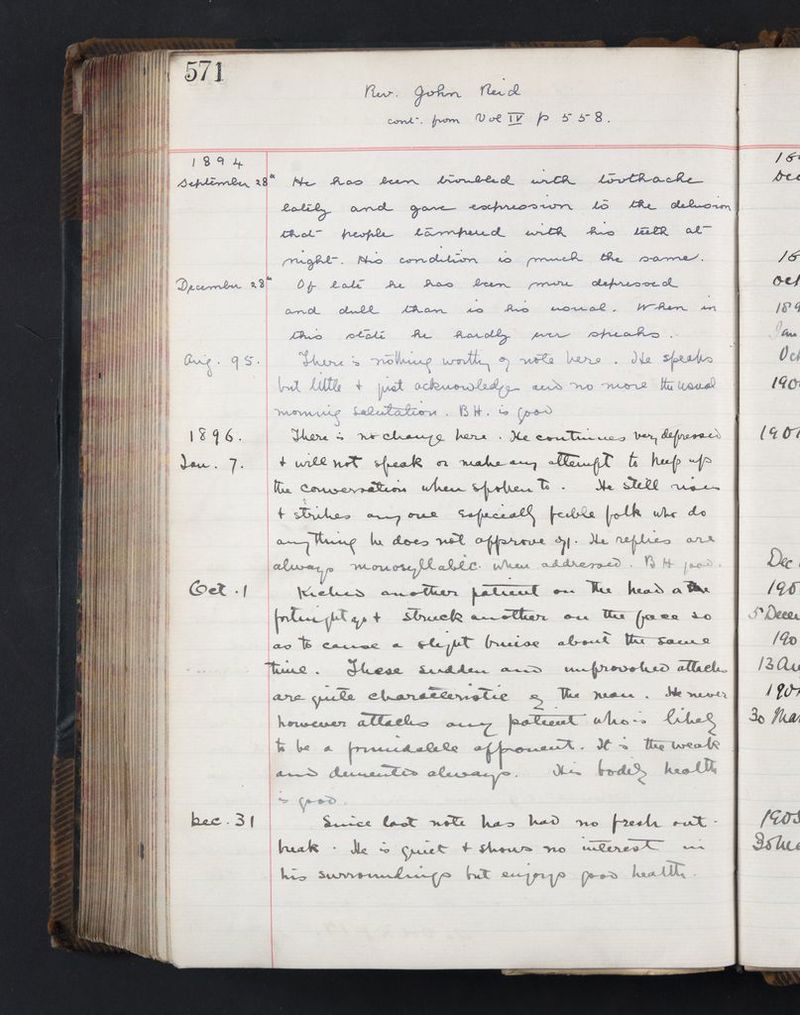 571
Rev. John Reid
cont. from Vol IV p 558.
1894
September 28th He has been troubled with toothache
lately and gave expression to the delusion
that people tampered with his teeth at
night. His condition is much the same.
December 28th Of late he has been more depressed
and dull than is his usual. When in
this state he hardly ever speaks.
Aug. 95. There is nothing worthy of note here. He speaks
but little & just acknowledges and no more the usual
morning salutation. B.H. is good
1896. There is no change here. He continues very depressed
Jan. 7. & will not speak or make any attempt to keep up
the conversation when spoken to. He still rises
& strikes any one especially feeble folk who do
anything he does not approve of. He replies are
always monosyllabic when addressed. B H good.
Oct. 1 Kicked another patient on the head a
fortnight ago & struck another on the face so
as to cause a slight bruise about the same
time. These sudden and unprovoked attacks
are quite characteristic of the man. He never
however attacks any patient who is likely
to be a formidable opponent. It is the weak
and demented always. His bodily health
is good.
Dec. 31 Since last note has had no fresh out-
break. He is quiet & shows no interest in
his surroundings but enjoys good health.
Oct
Jan
Oct
1901
Dec
5 Decem
13 Au
30 Mar
1903